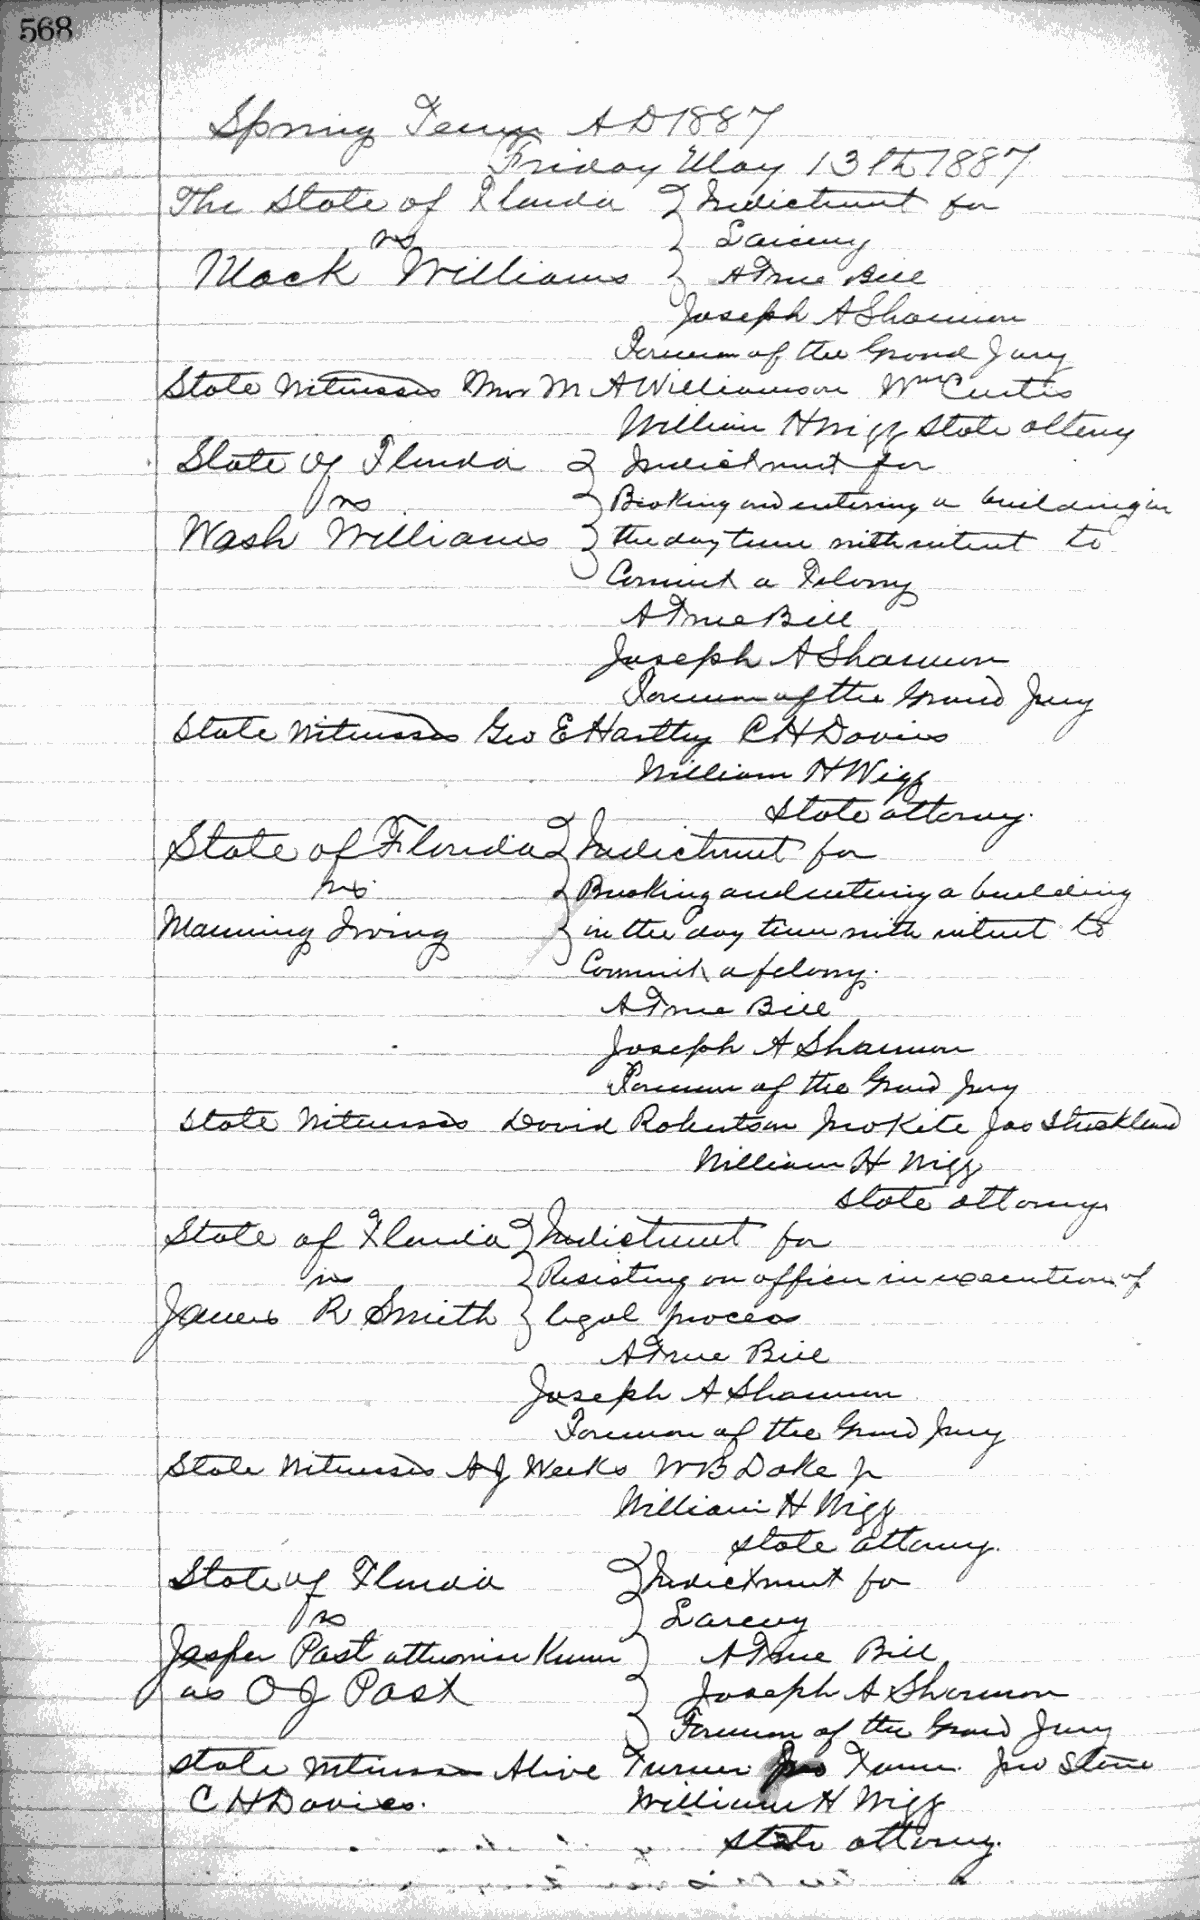 568
Spring Term A D 1887
Friday May 13th 1887
The State of Florida Indictment for
vs Larceny
Mack Williams A True Bill
Joseph A Shannon
Foreman of the Grand Jury
State Witnesses Mrs M A Williamson Wm Curtis
William H Wigg State attorny
State of Florida Indictment for
vs Breaking and entering a building in
Wash Williams the day time with intent to
Commit a Felony
A True Bill
Joseph A Shannon
Foreman of the Grand Jury
State Witnesses Geo E Hartley C H Davies
William H Wigg
State attorny.
State of Florida Indictment for
vs. Breaking and entering a building
Manning Irving in the day time with intent to
Commit a felony.
A True Bill
Joseph A Shannon
Foreman of the Grand Jury
State Witnesses David Robertson Jno Kite Jas Strickland
William H Wigg
State attorny
State of Florida Indictment for
vs Resisting an officer in execution of
James R Smith legal process
A True Bill
Joseph A Shannon
Foreman of the Grand Jury
State Witnesses A J Weeks W B Dake Jr
William H Wigg
State attorny.
State of Florida Indictment for
vs Larceny
Jasper Past otherwise Known A True Bill
as O J Past Joseph A Shannon
Foreman of the Grand Jury
State Witnesses Turner Jno Jno Stone
C H Davies. William H Wigg
State attorny.